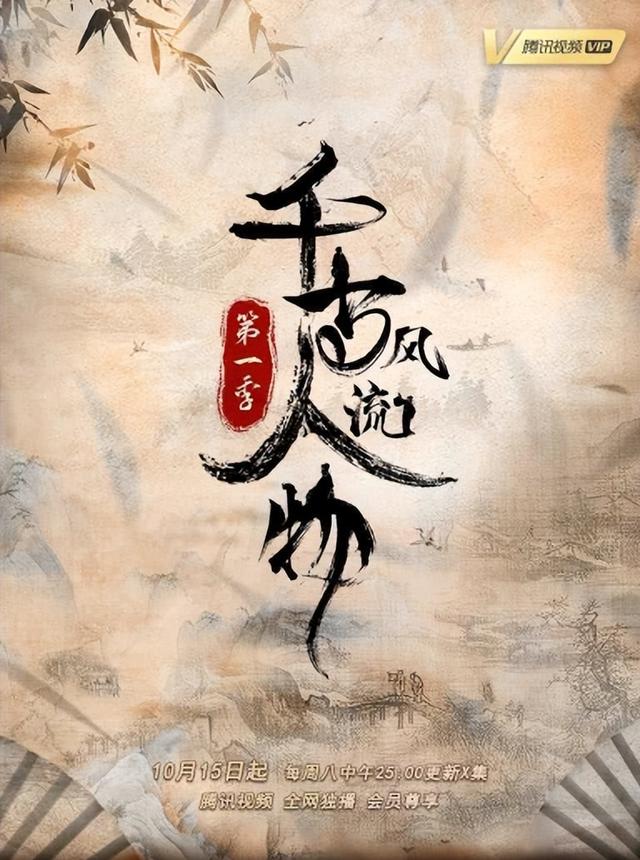 腾讯视频 VIP
千古风流人物
第一季
10月15日起 每周八中午25:00更新X集
腾讯视频 全网独播 会员尊享